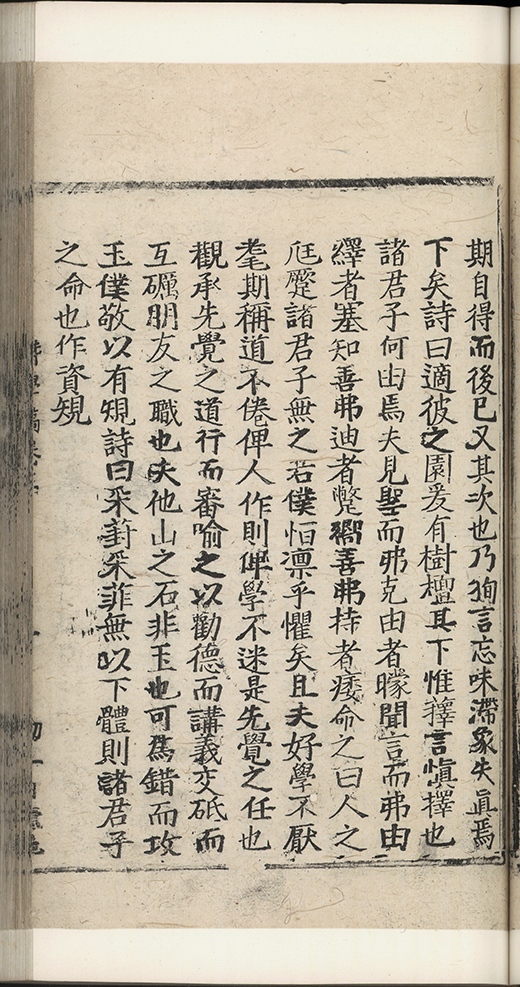 期自得而後已又其次也乃狥言忘味滯象失眞焉
下矣詩曰適彼之園爰有樹檀其下惟蘀言慎擇也
諸君子何由焉夫見聖而弗克由者矇聞言而弗由
繹者塞知善弗迪者蹩嚮善弗持者痿命之曰人之
尫蹷諸君子無之若僕怕凛乎懼矣且夫好學不厭
耄期稱道不倦俾人作則俾學不迷是先覺之任也
觀承先覺之道行而審喻之以勸德而講義交砥而
互礪朋友之職也夫他山之石非玉也可為錯而攻
玉僕敬以有規詩曰采葑采菲無以下體則諸君子
之命也作資規